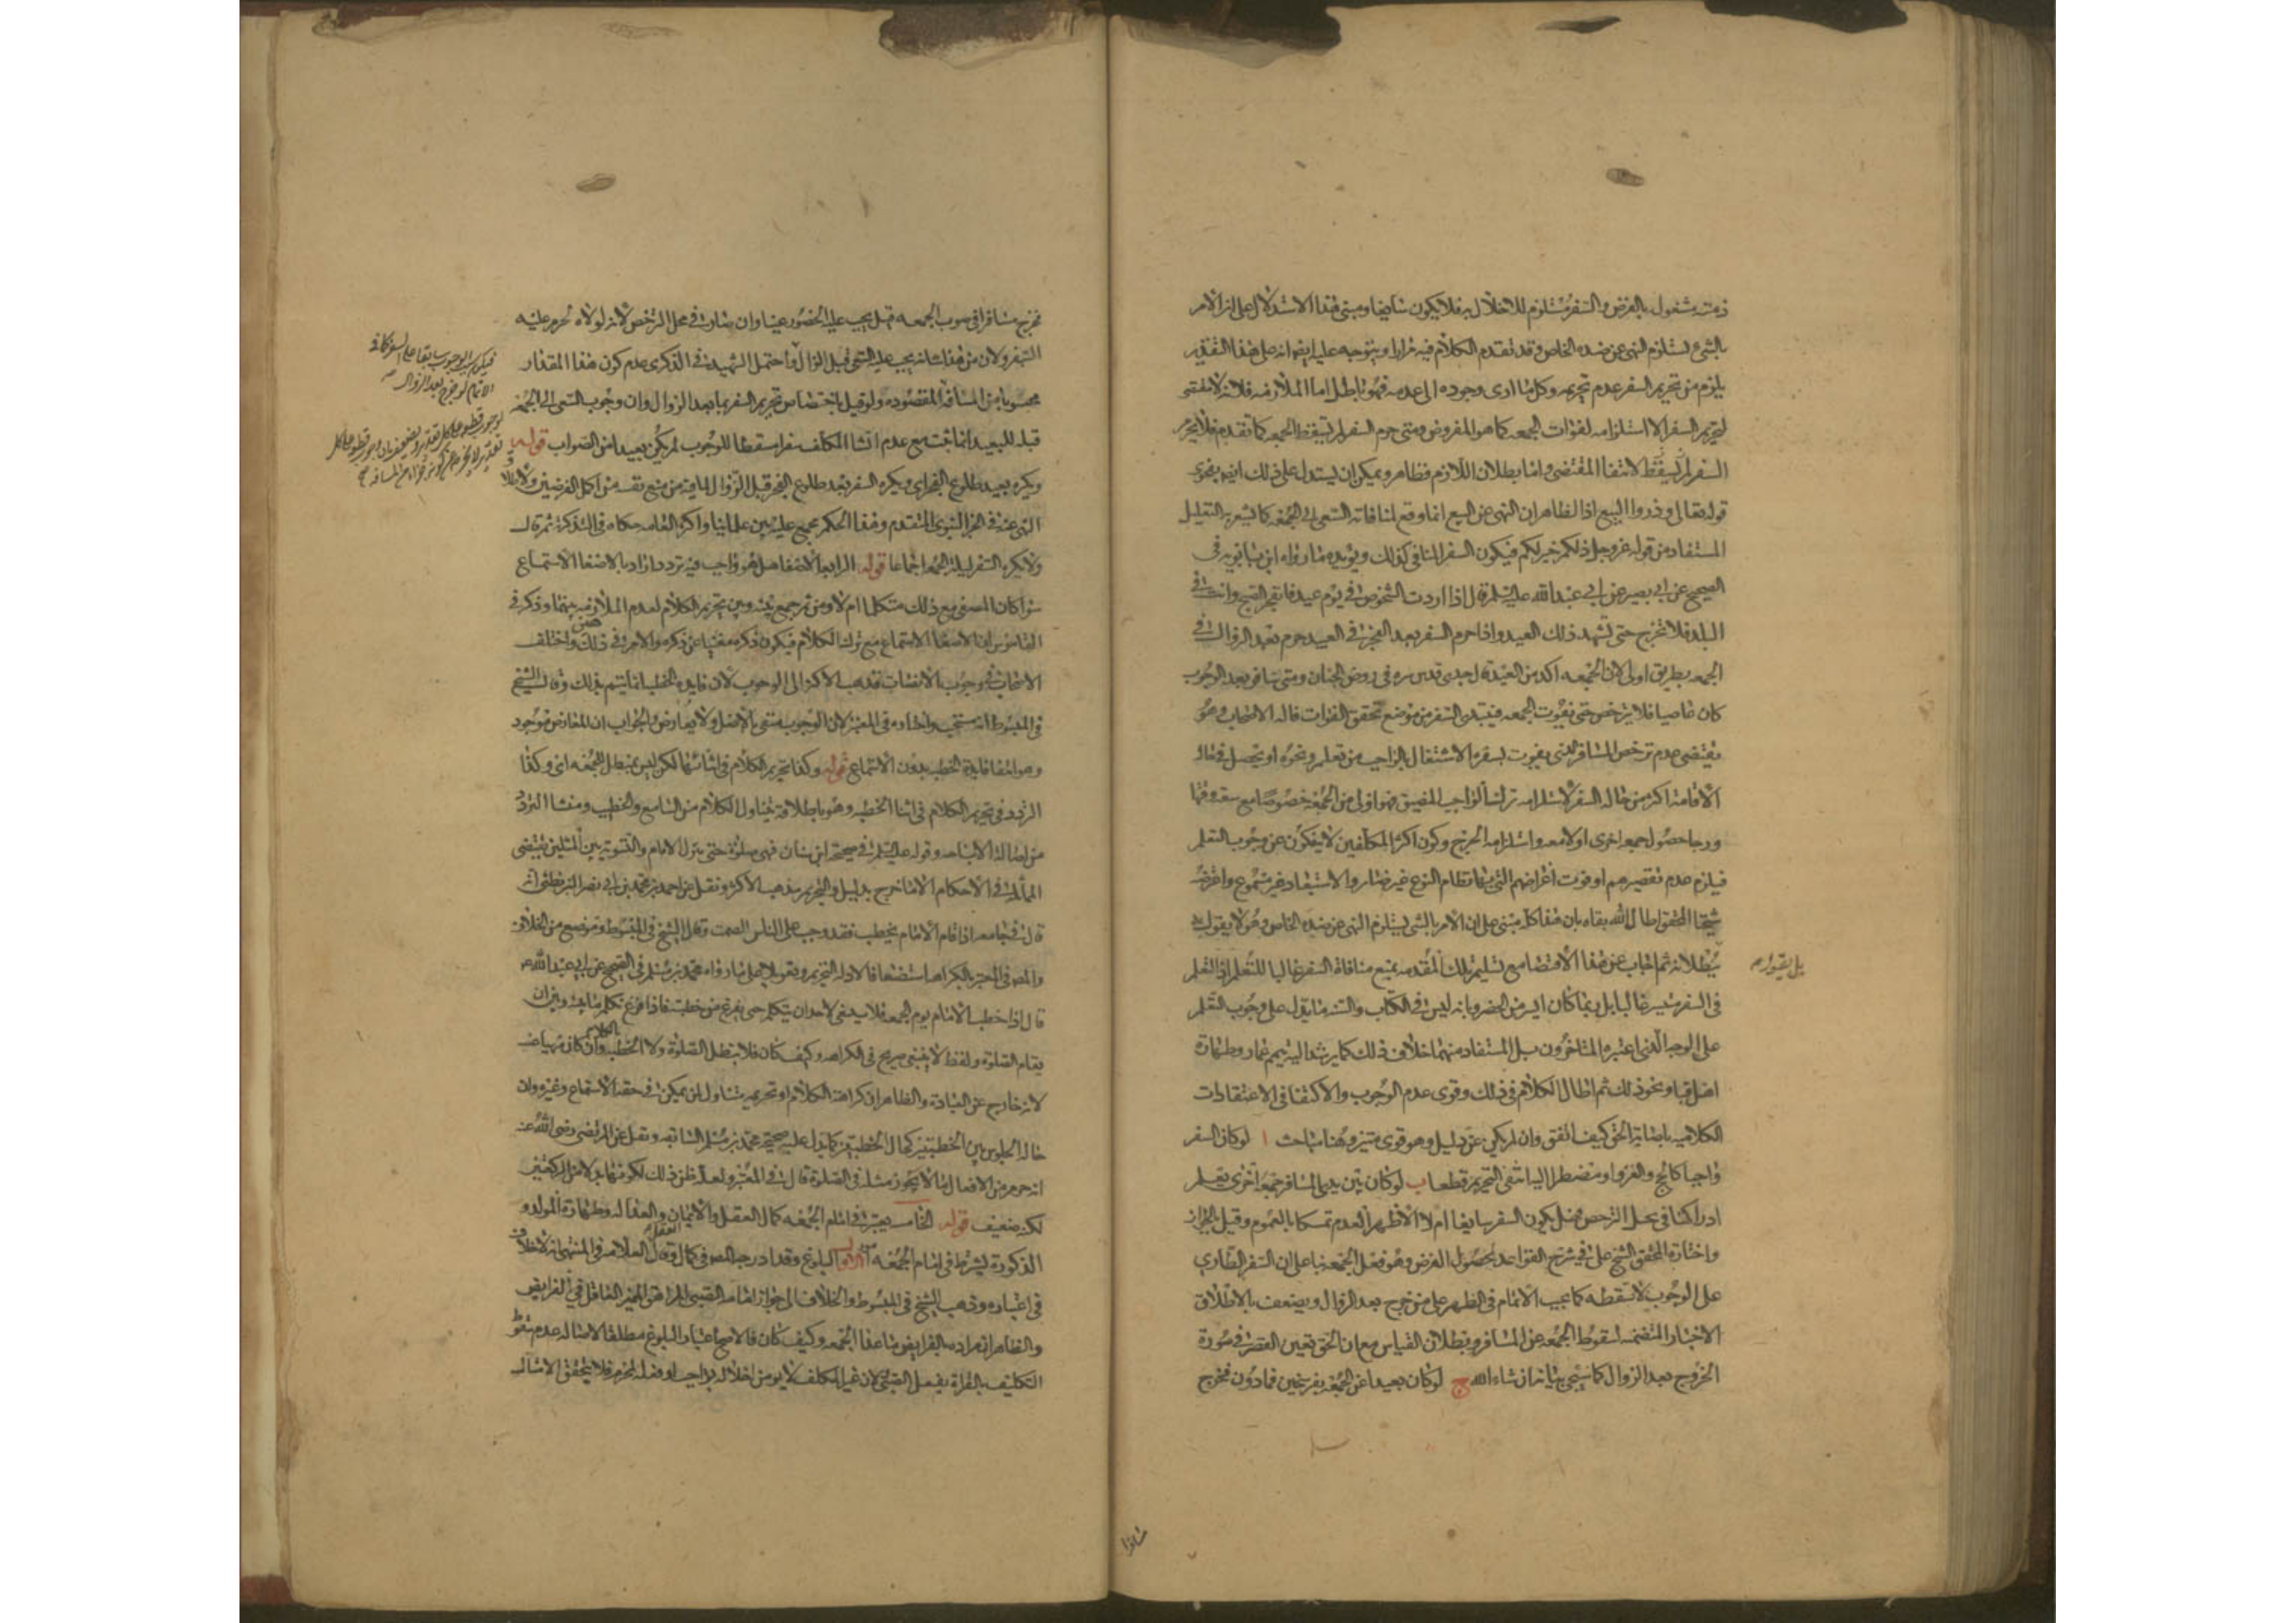 ذمته مشغول بالفرض والسفر مستلزم للاخلال به فلا يكون سايغا ومبنى هذا الاستدلال على ان الامر
بالشئ يستلزم النهى عن ضده الخاص وقد تقدم الكلام فيه مرارا ويتوجه عليه ايضا انه على هذا التقدير
يلزم من تحريم السفر عدم تحريمه وكل ما ادى وجوده الى عدمه فهو باطل اما الملازمه فلانه لا مقتضى
لتحريم السفر الا استلزامه لفوات الجمعه كما هو المفروض ومتى حرم السفر لم تسقط الجمعه كما تقدم فلا يحرم
السفر لم يسقط لانتفا المقتضى واما بطلان اللازم فظاهر ويمكن ان يستدل على ذلك ايضا بفحوى
قوله تعالى وذروا البيع اذ الظاهر ان النهى عن البيع انما وقع لمنافاته السعى الى الجمعه كما يشعر به التعليل
المستفاد من قوله عز وجل ذلكم خير لكم فيكون السفر المنافى كذلك ويؤيده ما رواه ابن بابويه فى
الصحيح عن ابى بصير عن ابى عبد الله عليه السلم قال اذا اردت الشخوص فى يوم عيد فانفجر الصبح وانت فى
البلد فلا تخرج حتى تشهد ذلك العيد واذا حرم السفر بعد الفجر فى العيد حرم بعد الزوال فى
الجمعه بطريق اولى لان الجمعه اكد من العيد قال جدى قدس سره فى روض الجنان ومتى سافر بعد الوجوب
كان عاصيا فلا يترخص حتى تفوت الجمعه فيبتدى السفر من موضع تحقق الفوات قاله الاصحاب وهو
يقتضى عدم ترخص المسافر الذى يفوت بسفره الاشتغال بالواجب من تعلم ونحوه او يحصل فى حاله
الاقامه اكثر من حاله السفر لاستلزامه ترك الواجب المضيق فهو اولى من الجمعه خصوصا مع سعة وقتها
ورجا حصول جمعه اخرى اولا معه واستلزامه الحرج وكون اكثر المكلفين لا ينفكون عن وجوب التعلم
فيلزم عدم تقصيرهم او فوت اغراضهم التى بها نظام النوع غير ضائر والاستبعاد غير مسموع واعترضه
شيخنا المحقق اطال الله بقاه بان هذا كله مبنى على ان الامر بالشئ يستلزم النهى عن ضده الخاص وهو لا يقول به
بل يقول
ببطلانه ثم اجاب عن هذا الاقتضا مع تسليم تلك المقدمه بمنع منافاة السفر غالبا للتعلم اذ التعلم
فى السفر متيسر غالبا بل ربما كان ايسر من الحضر وبانه ليس فى الكتاب والسنه ما يدل على وجوب التعلم
على الوجه الذى اعتبره المتاخرون بل المستفاد منهما خلاف ذلك كما يرشد اليه تيمم عمار وطهارة
اهل قبا ونحو ذلك ثم اطال الكلام فى ذلك وقوى عدم الوجوب والاكتفا فى الاعتقادات
الكلاميه باصابة الحق كيف اتفق وان لم يكن عن دليل وهو قوى متين وهنا مباحث ا لو كان السفر
واجبا كالحج والغزو او مضطرا اليه انتفى التحريم قطعا ب لو كان بين يدى المسافر جمعة اخرى يعلم
ادراكها فى محل الترخص فهل يكون السفر سايغا ام لا الاظهر العدم تمسكا بالعموم وقيل بالجواز
واختاره المحقق الشيخ على فى شرح القواعد لحصول الغرض وهو فعل الجمعه بنا على ان السفر الطارى
على الوجوب لا يسقطه كما يجب الاتمام فى الظهر على من خرج بعد الزوال ويضعف باطلاق
الاخبار المتضمنه لسقوط الجمعه عن المسافر وبطلان القياس مع ان الحق تعين القصر فى صورة
الخروج بعد الزوال كما سيجى بيانه ان شاء الله ج لو كان بعيدا عن الجمعه بفرسخين فما دون فخرج
فخرج مسافرا فى صوب الجمعه قيل يجب عليه الحضور عينا وان صار فى محل الترخص لانه لولاه لحرم عليه
السفر ولان من هذا شانه يجب عليه السعى قبل الزوال واحتمل الشهيد فى الذكرى عدم كون هذا المقدار
محسوبا من المسافة المقصوده ولو قيل باختصاص تحريم السفر بما بعد الزوال وان وجوب السعى الى الجمعه
قبله للبعيد انما يثبت مع عدم انشا المكلف سفرا مسقطا للوجوب لم يكن بعيدا من الصواب قوله
ويكره بعد طلوع الفجر اى ويكره السفر بعد طلوع الفجر قبل الزوال لما فيه من منع نفسه من اكمل الفرضين ولاطلاق
النهى عنه فى الخبر النبوى المتقدم وهذا الحكم مجمع عليه بين علمائنا واكثر العامه حكاه فى التذكرة ثم قال
ولا يكره السفر ليلة الجمعه اجماعا قوله الرابعه الاصغا هل هو واجب فيه تردد المراد بالاصغا الاستماع
سوا كان المصغى مع ذلك متكلما ام لا ومن ثم جمع بينه وبين تحريم الكلام لعدم الملازمه بينهما وذكر فى
القاموس ان الاصغا الاستماع مع ترك الكلام فيكون ذكره مغنيا عن ذكره والامر فى ذلك هين واختلف
الاصحاب فى وجوب الانصات فذهب الاكثر الى الوجوب لان فايدة الخطبه انما يتم بذلك وقال الشيخ
فى المبسوط انه مستحب واختاره فى المعتبر لان الوجوب منفى بالاصل ولا يعارض والجواب ان المعارض موجود
وهو انتفا فايدة الخطبه بدون الاستماع قوله وكذا تحريم الكلام فى اثنائها لكن ليس بمبطل للجمعه اى وكذا
التردد فى تحريم الكلام فى اثنا الخطبه وهو باطلاقه يتناول الكلام من السامع والخطيب ومنشا التردد
من اصالة الاباحه وقوله عليه السلم فى صحيحة ابن سنان فهى صلوة حتى ينزل الامام والتسويه بين المثلين يقتضى
المماثله فى الاحكام الا ما خرج بدليل والتحريم مذهب الاكثر ونقل عن احمد بن محمد بن ابى نصر البزنطى انه
قال فى جامعه اذا قام الامام يخطب فقد وجب على الناس الصمت وقال الشيخ فى المبسوط وموضع من الخلاف
والمص فى المعتبر بالكراهه استضعافا لادلة التحريم وتعويلا على ما رواه محمد بن مسلم فى الصحيح عن ابى عبد الله
قال اذا خطب الامام يوم الجمعه فلا ينبغى لاحد ان يتكلم حتى يفرغ من خطبته فاذا فرغ تكلم ما بينه وبين ان
يقام الصلوة ولفظ لا ينبغى صريح فى الكراهه وكيف كان فلا تبطل الصلوة ولا الخطبه بالكلام وان كان منهيا عنه
لانه خارج عن العبادة والظاهر ان كراهة الكلام او تحريمه يتناول من يمكن فى حقه الاستماع وغيره وان
حالة الجلوس بين الخطبتين كحال الخطبتين كما يدل عليه صحيحة محمد بن مسلم السابقه ونقل عن المرتضى رضى الله عنه
انه حرم من الافعال ما لا يجوز مثله فى الصلوة قال فى المعتبر ولعله ظن ذلك لكونهما بدلا من الركعتين
لكنه ضعيف قوله الخامسه يعتبر فى امام الجمعه كمال العقل والايمان والعداله وطهارة المولد و
الذكورة يشترط فى امام الجمعه امور الاول البلوغ وقد ادرجه المص فى كمال العقل وقال العلامه فى المنتهى انه لا خلاف
فى اعتباره وذهب الشيخ فى المبسوط والخلاف الى جواز امامة الصبى المراهق المميز العاقل فى الفرايض
والظاهر ان مراده بالفرايض ما عدا الجمعه وكيف كان فالاصح اعتبار البلوغ مطلقا لاصالة عدم سقوط
التكليف بالقراة بفعل الصبى ولان غير المكلف لا يؤمن اخلاله بواجب او فعله لمحرم فلا يتحقق الامتثال
فيكون الوجوب سابقا على السفر كما فى
الاتمام لو خرج بعد الزوال